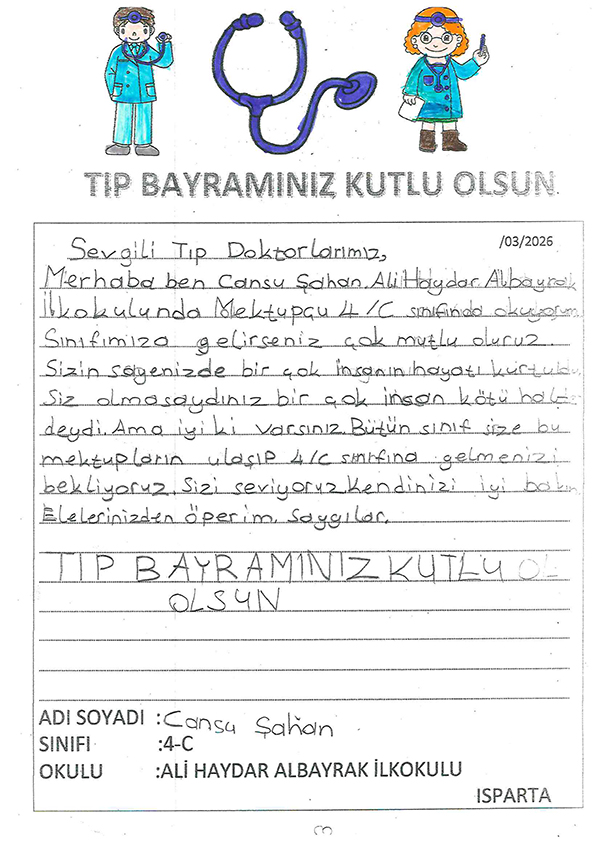 TIP BAYRAMINIZ KUTLU OLSUN
/03/2026
Sevgili Tıp Doktorlarımız,
Merhaba ben Cansu Şahan. Ali Haydar Albayrak
İlkokulunda Mektupçu 4/C sınıfında okuyorum
Sınıfımıza gelirseniz çok mutlu oluruz.
Sizin sayenizde bir çok insanın hayatı kurtuldu
Siz olmasaydınız bir çok insan kötü hal
deydi. Ama iyi ki varsınız. Bütün sınıf size bu
mektupların ulaşıp 4/C sınıfına gelmenizi
bekliyoruz. Sizi seviyoruz kendinizi iyi bakın
Elelerinizden öperim. Saygılar.
TIP BAYRAMINIZ KUTLU OL
OLSUN
ADI SOYADI :Cansu Şahan
SINIFI :4-C
OKULU :ALİ HAYDAR ALBAYRAK İLKOKULU
ISPARTA